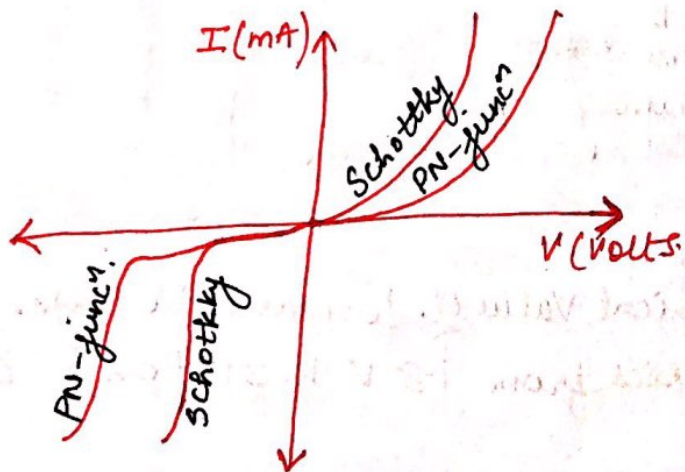 I(mA)
Schottky
PN-juncⁿ
V(Volts.
PN-juncⁿ.
Schotkky